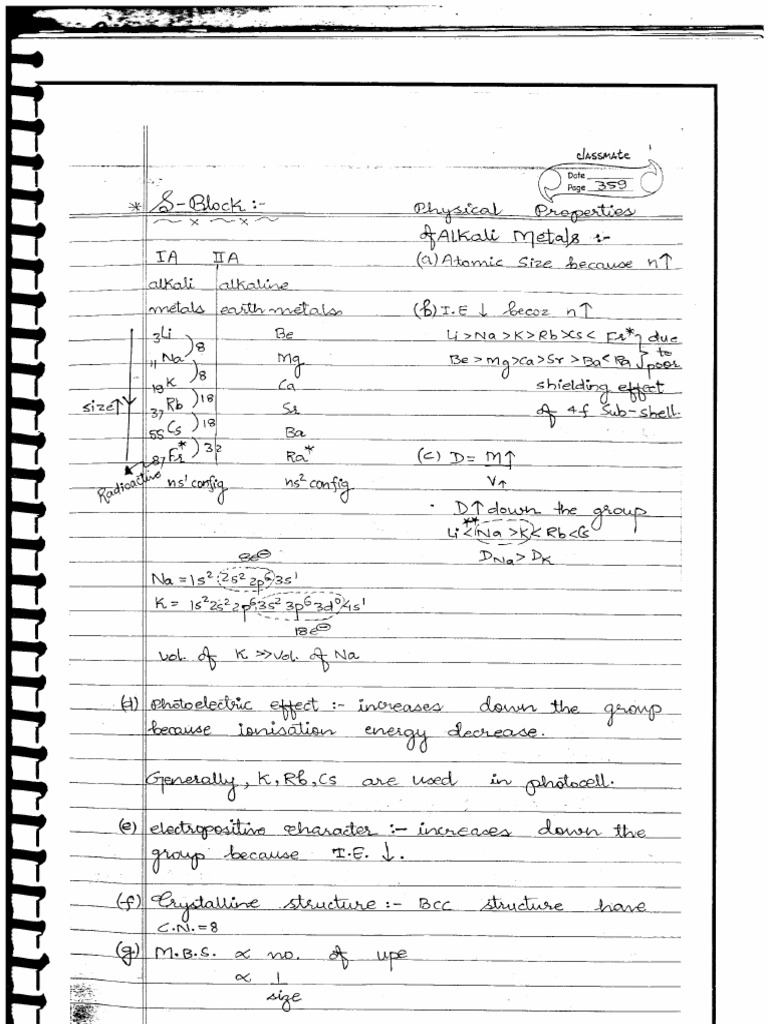 classmate
Date
Page 359
* S-Block :-
IA IIA
alkali alkaline
metals earth metals
3Li Be
)8
11Na Mg
)8
19K Ca
)18
size↑ 37Rb Sr
)18
55Cs Ba
)32
87Fr* Ra*
Radioactive ns¹ config ns² config
Physical Properties
of Alkali Metals :-
(a) Atomic Size because n↑
(b) I.E ↓ becoz n↑
Li > Na > K > Rb > Cs < Fr* } due
Be > Mg > Ca > Sr > Ba < Ra } to poor
shielding effect
of 4f Sub-shell.
(c) D = M↑
V↑
· D↑ down the group
Li < Na ** > K < Rb < Cs
D Na > D K
8e⊖
Na = 1s² 2s² 2p⁶ 3s¹
K = 1s² 2s² 2p⁶ 3s² 3p⁶ 3d⁰ 4s¹
18e⊖
vol. of K >> vol. of Na
(d) Photoelectric effect :- increases down the group
because ionisation energy decrease.
Generally, K, Rb, Cs are used in photocell.
(e) electropositive character :- increases down the
group because I.E. ↓.
(f) Crystalline structure :- BCC structure have
C.N. = 8
(g) M.B.S. ∝ no. of upe
∝ 1
size